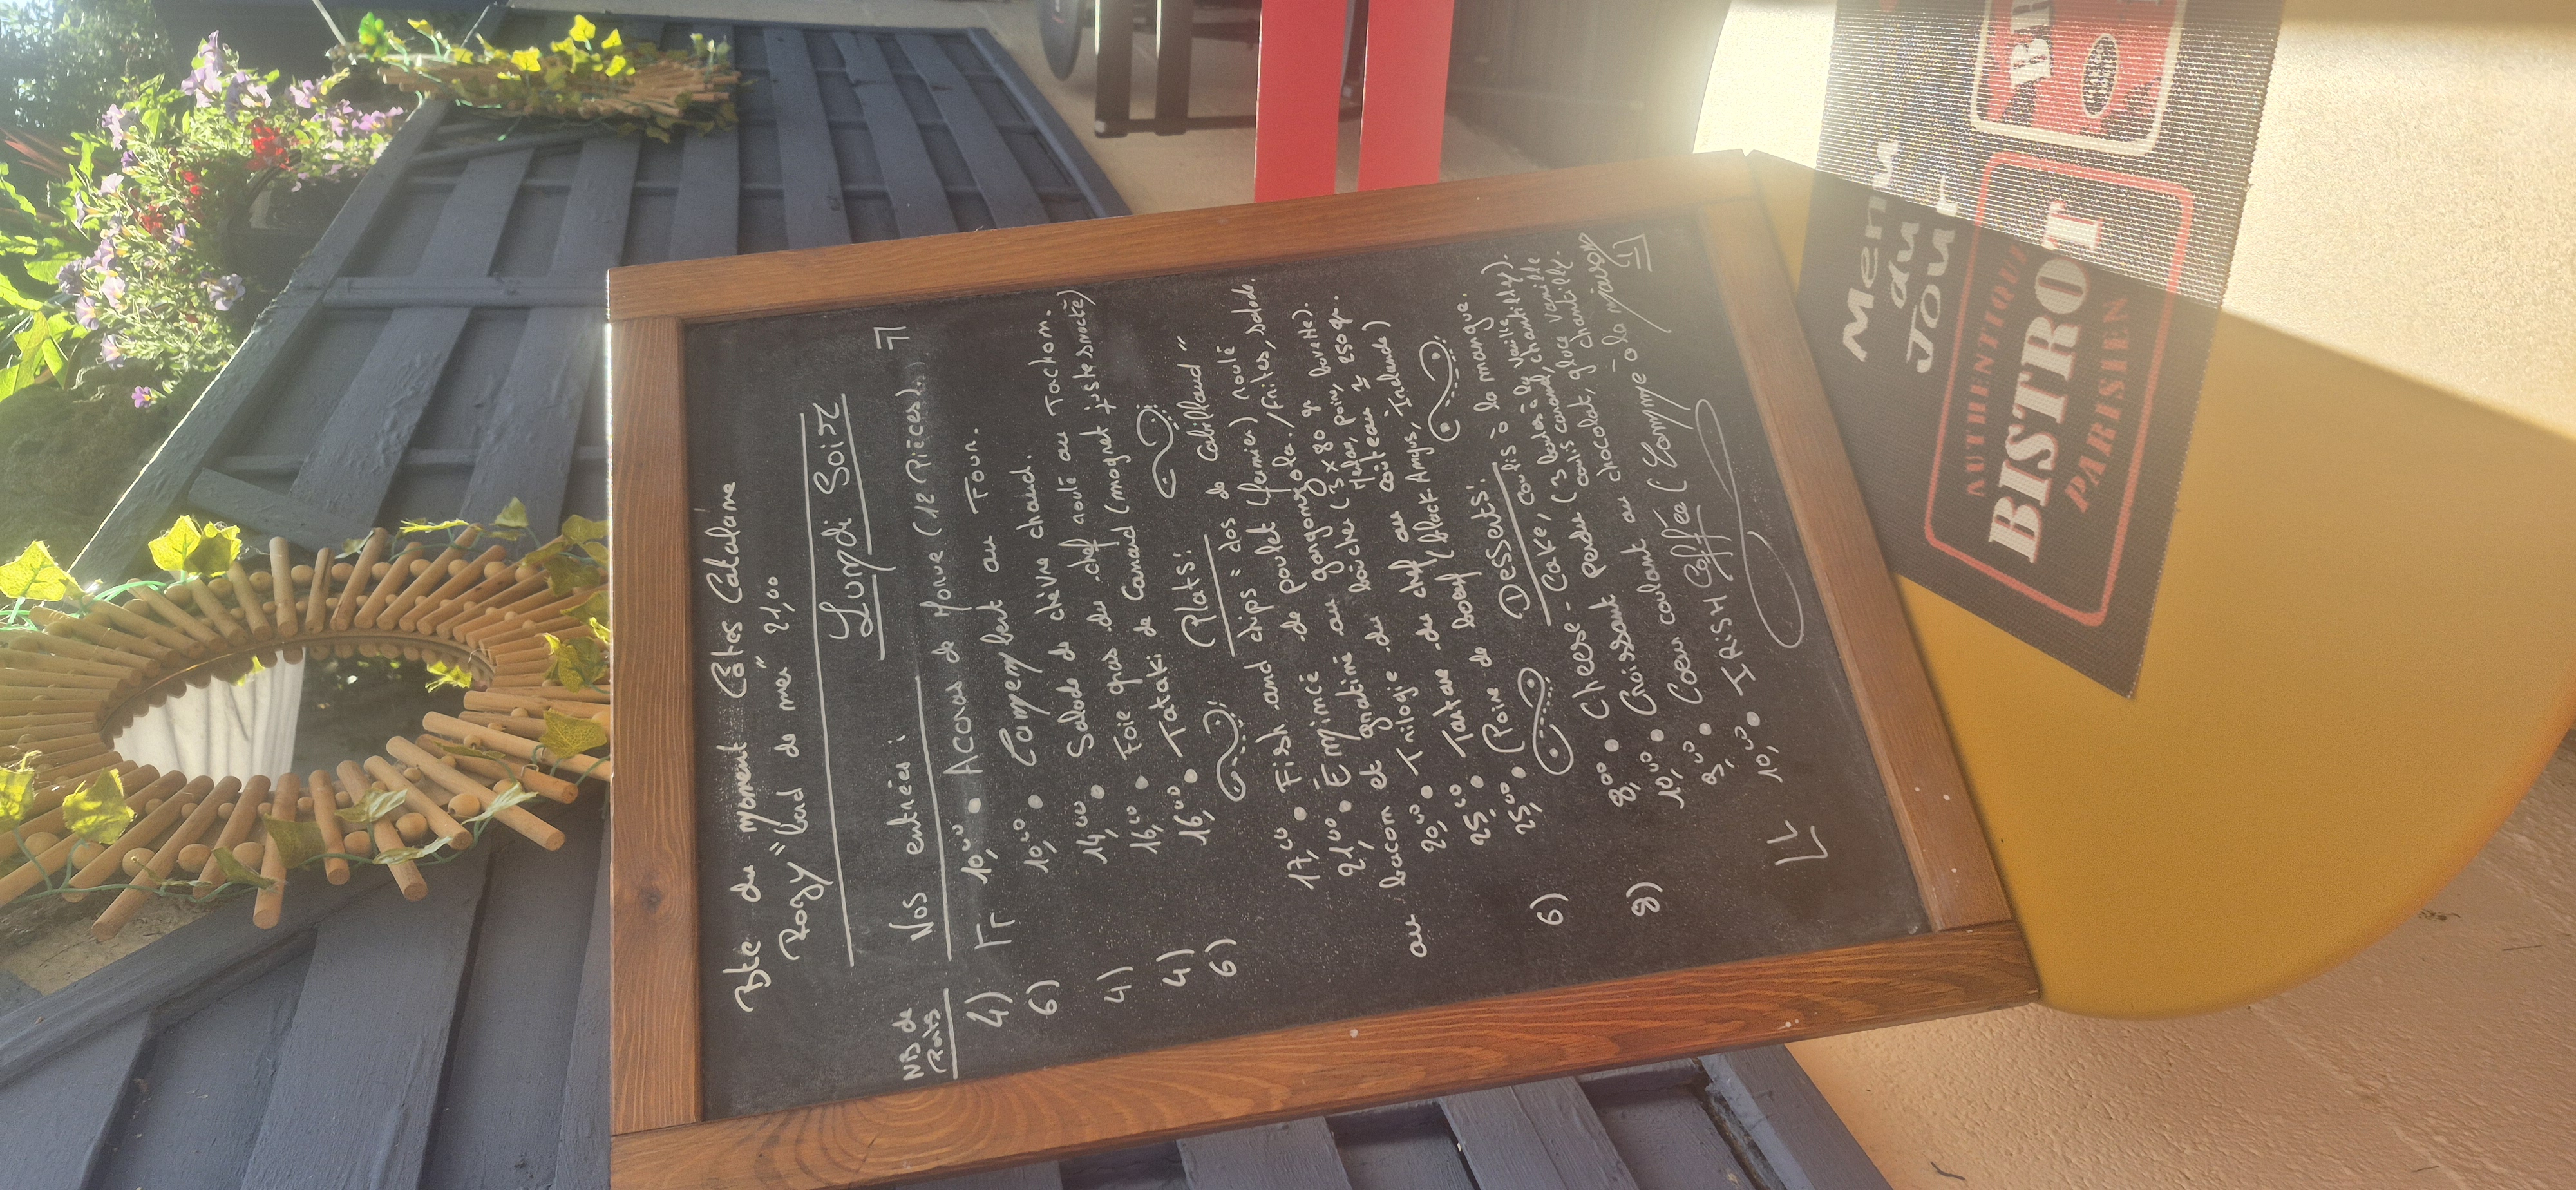 Bté du moment Côtes Catalane
Rosy "bord de mer" 21,00
Lundi Soir
NB de Parts
Nos entrées :
4) 10,00 • Acras de Morue (12 Pièces).
6) 10,00 • Camembert au Four.
14,00 • Salade de chèvre chaud.
4) 16,00 • Foie gras du chef nouté au Torchon.
4) 16,00 • Tataki de Canard (magret juste snacké)
6) Plats :
17,00 • Fish and chips = dos de Cabillaud"
21,00 • Émincé de poulet (fermier) nouté
au bacon et gratiné au gorgonzola. /Frites, salade.
20,00 • Trilogie du boucher (3 x 80 g
25,00 • Tartare du chef au couteau 250 gr.
25,00 • Poire de boeuf (black Angus, Irelande)
Desserts :
6) 8,00 • Cheese-Cake, coulis à la mangue.
10,00 • Croissant perdu (3 boules à la vanille
coulis caramel, chantilly).
8) 9,00 • Coeur coulant au chocolat, glace vanille
chantilly.
10,00 • IRISH Coffée (Comme à la maison)
Menu
du
Jour
AUTHENTIQUE
BISTROT
PARISIEN